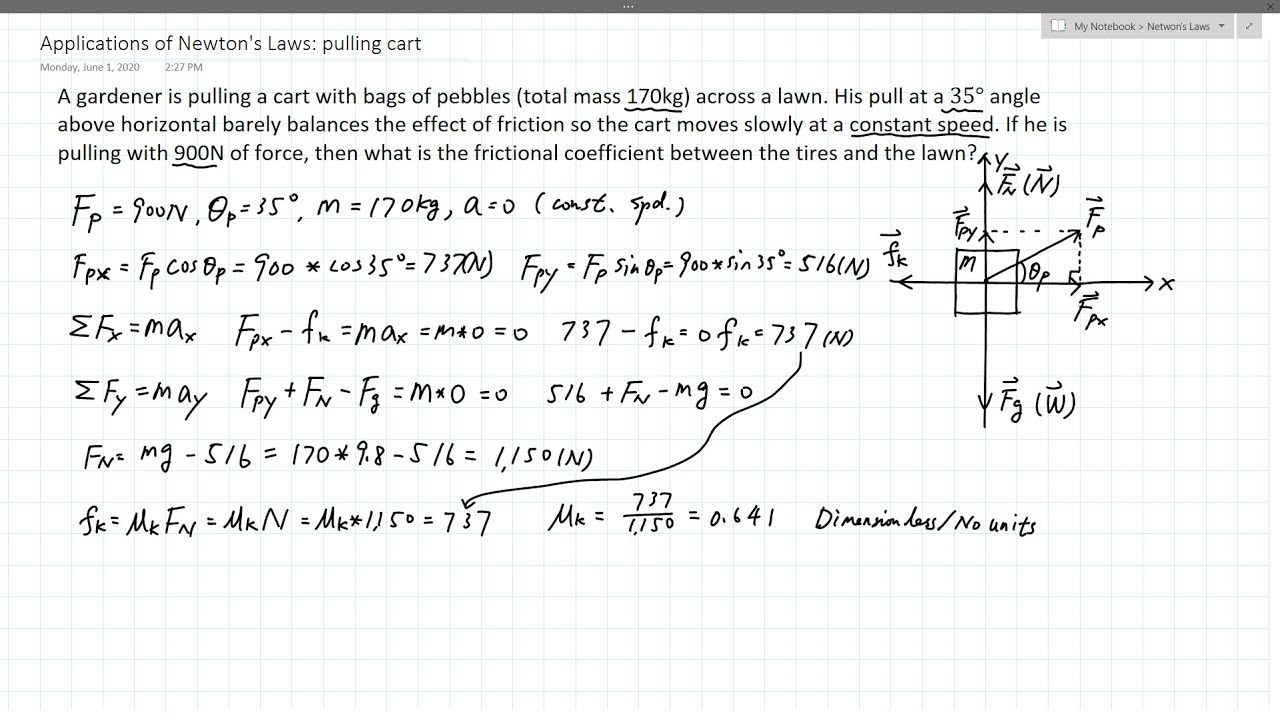 My Notebook > Netwon's Laws
Applications of Newton's Laws: pulling cart
Monday, June 1, 2020 2:27 PM
A gardener is pulling a cart with bags of pebbles (total mass 170kg) across a lawn. His pull at a 35° angle
above horizontal barely balances the effect of friction so the cart moves slowly at a constant speed. If he is
pulling with 900N of force, then what is the frictional coefficient between the tires and the lawn?
F_P = 900N, θ_p = 35°, m = 170kg, a = 0 (const. spd.)
F_px = F_p cosθ_p = 900 * cos35° = 737(N) F_py = F_p sinθ_p = 900 * sin35° = 516(N)
ΣF_x = ma_x F_px - f_k = ma_x = m*0 = 0 737 - f_k = 0 f_k = 737(N)
ΣF_y = ma_y F_py + F_N - F_g = m*0 = 0 516 + F_N - mg = 0
F_N = mg - 516 = 170*9.8 - 516 = 1,150(N)
f_k = μ_k F_N = μ_k N = μ_k*1,150 = 737 μ_k = 737/1,150 = 0.641 Dimensionless/No units
y
F⃗_N (N⃗)
F⃗_py
F⃗_p
f⃗_k
m
θ_p
x
F⃗_px
F⃗_g (W⃗)